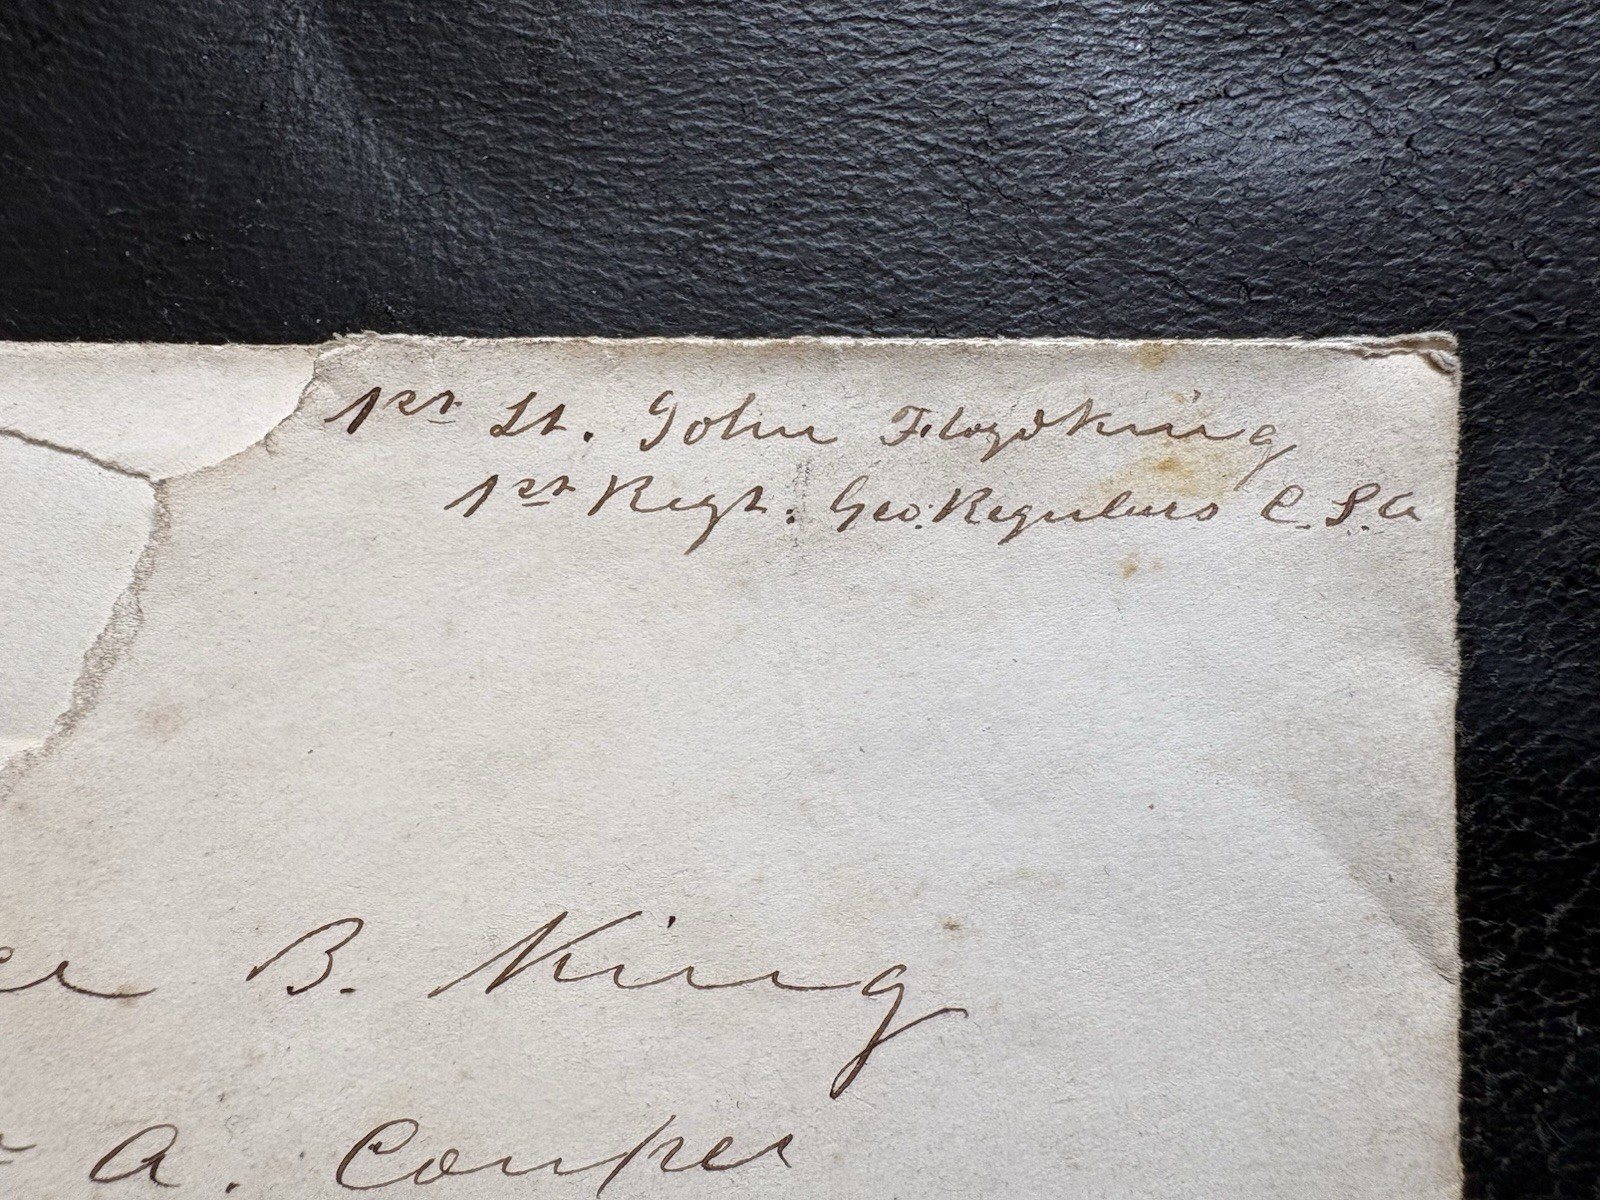 1st Lt. John Floyd King
1st Regt. Geo. Regulars C.S.A
B. King
A. Couper